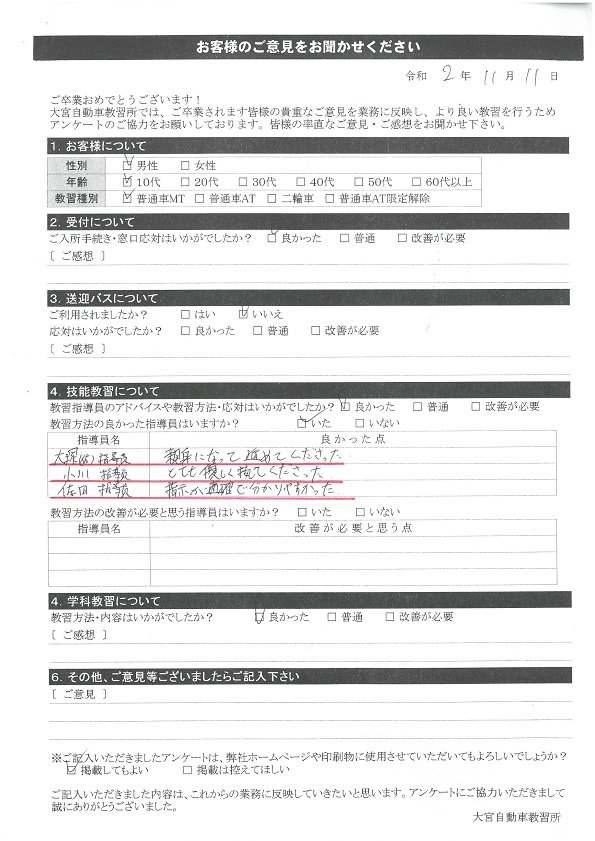 お客様のご意見をお聞かせください
令和 2 年 11 月 11 日
ご卒業おめでとうございます！
大宮自動車教習所では、ご卒業されます皆様の貴重なご意見を業務に反映し、より良い教習を行うため
アンケートのご協力をお願いしております。皆様の率直なご意見・ご感想をお聞かせ下さい。
1. お客様について
性別 ☑ 男性 □ 女性
年齢 ☑ 10代 □ 20代 □ 30代 □ 40代 □ 50代 □ 60代以上
教習種別 ☑ 普通車MT □ 普通車AT □ 二輪車 □ 普通車AT限定解除
2. 受付について
ご入所手続き・窓口応対はいかがでしたか？ ☑ 良かった □ 普通 □ 改善が必要
〔 ご感想 〕
3. 送迎バスについて
ご利用されましたか？ □ はい ☑ いいえ
応対はいかがでしたか？ □ 良かった □ 普通 □ 改善が必要
〔 ご感想 〕
4. 技能教習について
教習指導員のアドバイスや教習方法・応対はいかがでしたか？ ☑ 良かった □ 普通 □ 改善が必要
教習方法の良かった指導員はいますか？ ☑ いた □ いない
指導員名 良かった点
大塚 指導員 親身になって進めてくださった
小川 指導員 とても優しく接してくださった
佐田 指導員 指示が適確で分かりやすかった
教習方法の改善が必要と思う指導員はいますか？ □ いた □ いない
指導員名 改善が必要と思う点
4. 学科教習について
教習方法・内容はいかがでしたか？ ☑ 良かった □ 普通 □ 改善が必要
〔 ご感想 〕
6. その他、ご意見等ございましたらご記入下さい
〔 ご意見 〕
※ご記入いただきましたアンケートは、弊社ホームページや印刷物に使用させていただいてもよろしいでしょうか？
☑ 掲載してもよい □ 掲載は控えてほしい
ご記入いただきました内容は、これからの業務に反映していきたいと思います。アンケートにご協力いただきまして
誠にありがとうございました。
大宮自動車教習所